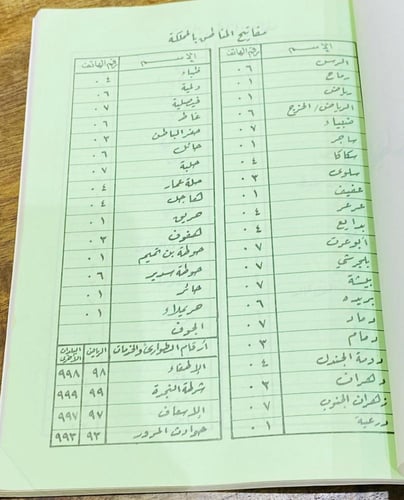 مفاتيح المناطق بالمملكة
الاسم رقم الهاتف
الرس ٠٦
رماح ٠١
رياض ٠١
الرياض / الخرج ٠١
ضبياء ٠٧
ساجر ٠١
سكاكا ٠٤
سلوى ٠٣
عفيف ٠١
عرعر ٠٤
بدايع ٠٦
أبو عرف ٠٧
بلجرشي ٠٧
بيشة ٠٧
بريده ٠٦
دمام ٠٣
دومة الجندل ٠٤
ظهران ٠٣
ظهران الجنوب ٠٧
درعية ٠١
الاسم رقم الهاتف
ضباء ٠٤
فيصلية ٠٧
حفر الباطن ٠٣
حائل ٠٦
حلية ٠٧
حلة عمار ٠٤
هريق ٠١
هفوف ٠٣
حوطة بن تميم ٠١
حوطة سدير ٠٦
حائر ٠١
حريملاء ٠١
الجوف
أرقام الطوارئ والخدمات الرياض البلدان الأخرى
الإطفاء ٩٨ ٩٩٨
شرطة النجدة ٩٩ ٩٩٩
الإسعاف ٩٧ ٩٩٧
حوادث المرور ٩٣ ٩٩٣